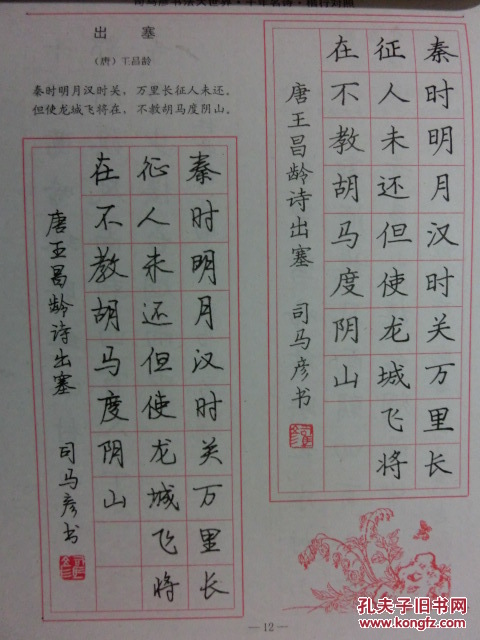 出 塞
（唐）王昌龄
秦时明月汉时关，万里长征人未还。
但使龙城飞将在，不教胡马度阴山。
秦时明月汉时关万里长
征人未还但使龙城飞将
在不教胡马度阴山
唐王昌龄诗出塞 司马彦书
秦时明月汉时关万里长
征人未还但使龙城飞将
在不教胡马度阴山
唐王昌龄诗出塞 司马彦书
— 12 —
孔夫子旧书网